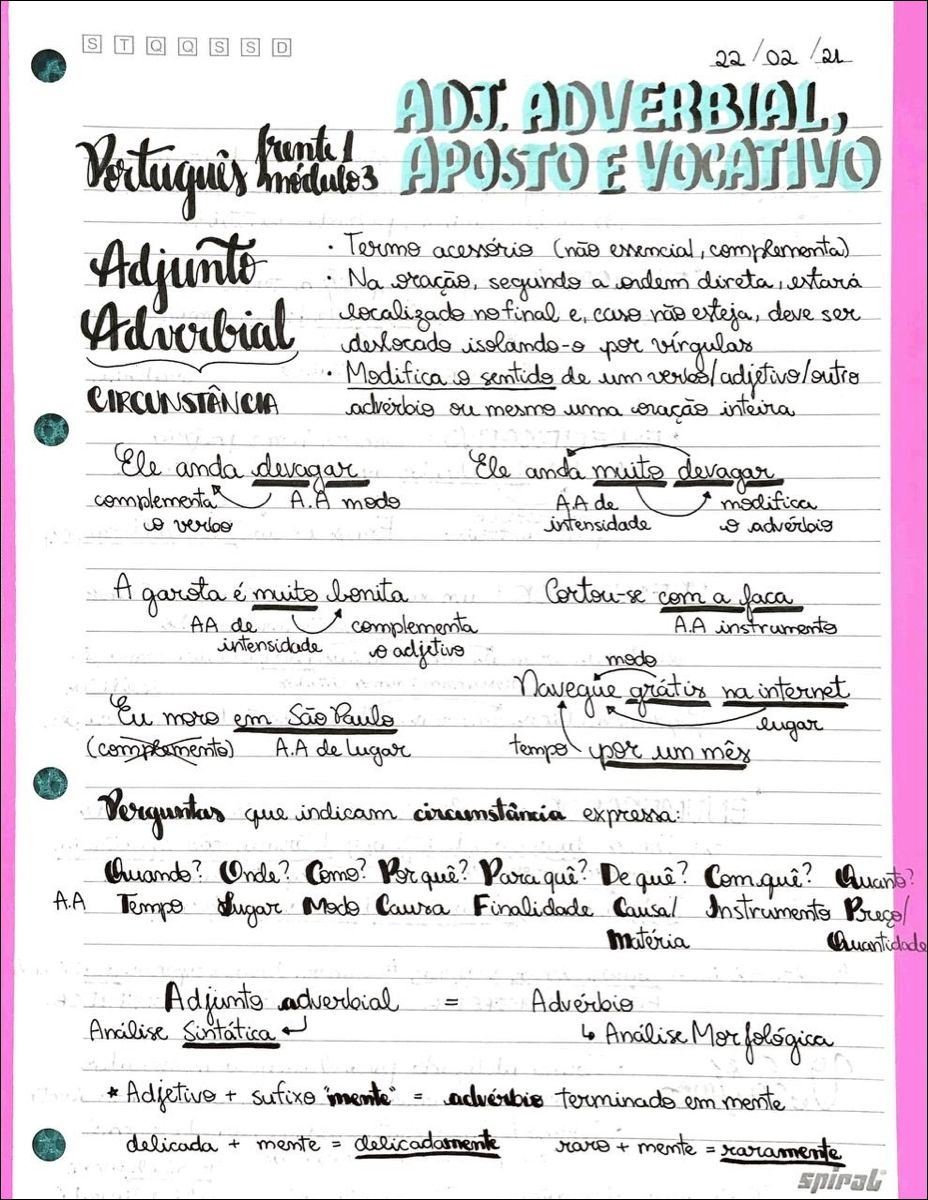 S T Q Q S S D
22/02/21
ADJ. ADVERBIAL,
APOSTO E VOCATIVO
Português frente 1
módulo 3
Adjunto
Adverbial
CIRCUNSTÂNCIA
· Termo acessório (não essencial, complementa)
· Na oração, segundo a ordem direta, estará
localizado no final e, caso não esteja, deve ser
deslocado isolando-o por vírgulas
· Modifica o sentido de um verbo/adjetivo/outro
advérbio ou mesmo uma oração inteira
Ele anda devagar
complementa A.A modo
o verbo
Ele anda muito devagar
A.A de modifica
intensidade o advérbio
A garota é muito bonita
AA de complementa
intensidade o adjetivo
Cortou-se com a faca
A.A instrumento
Eu moro em São Paulo
(complemento) A.A de Lugar
modo
Navegue grátis na internet
lugar
tempo por um mês
Perguntas que indicam circunstância expressa:
Quando? Onde? Como? Por quê? Para quê? De quê? Com quê? Quanto?
A.A Tempo Lugar Modo Causa Finalidade Causa/ Instrumento Preço/
Matéria Quantidade
Adjunto adverbial = Advérbio
Análise Sintática ↵ ↳ Análise Morfológica
* Adjetivo + sufixo "mente" = advérbio terminado em mente
delicada + mente = delicadamente raro + mente = raramente
spiral